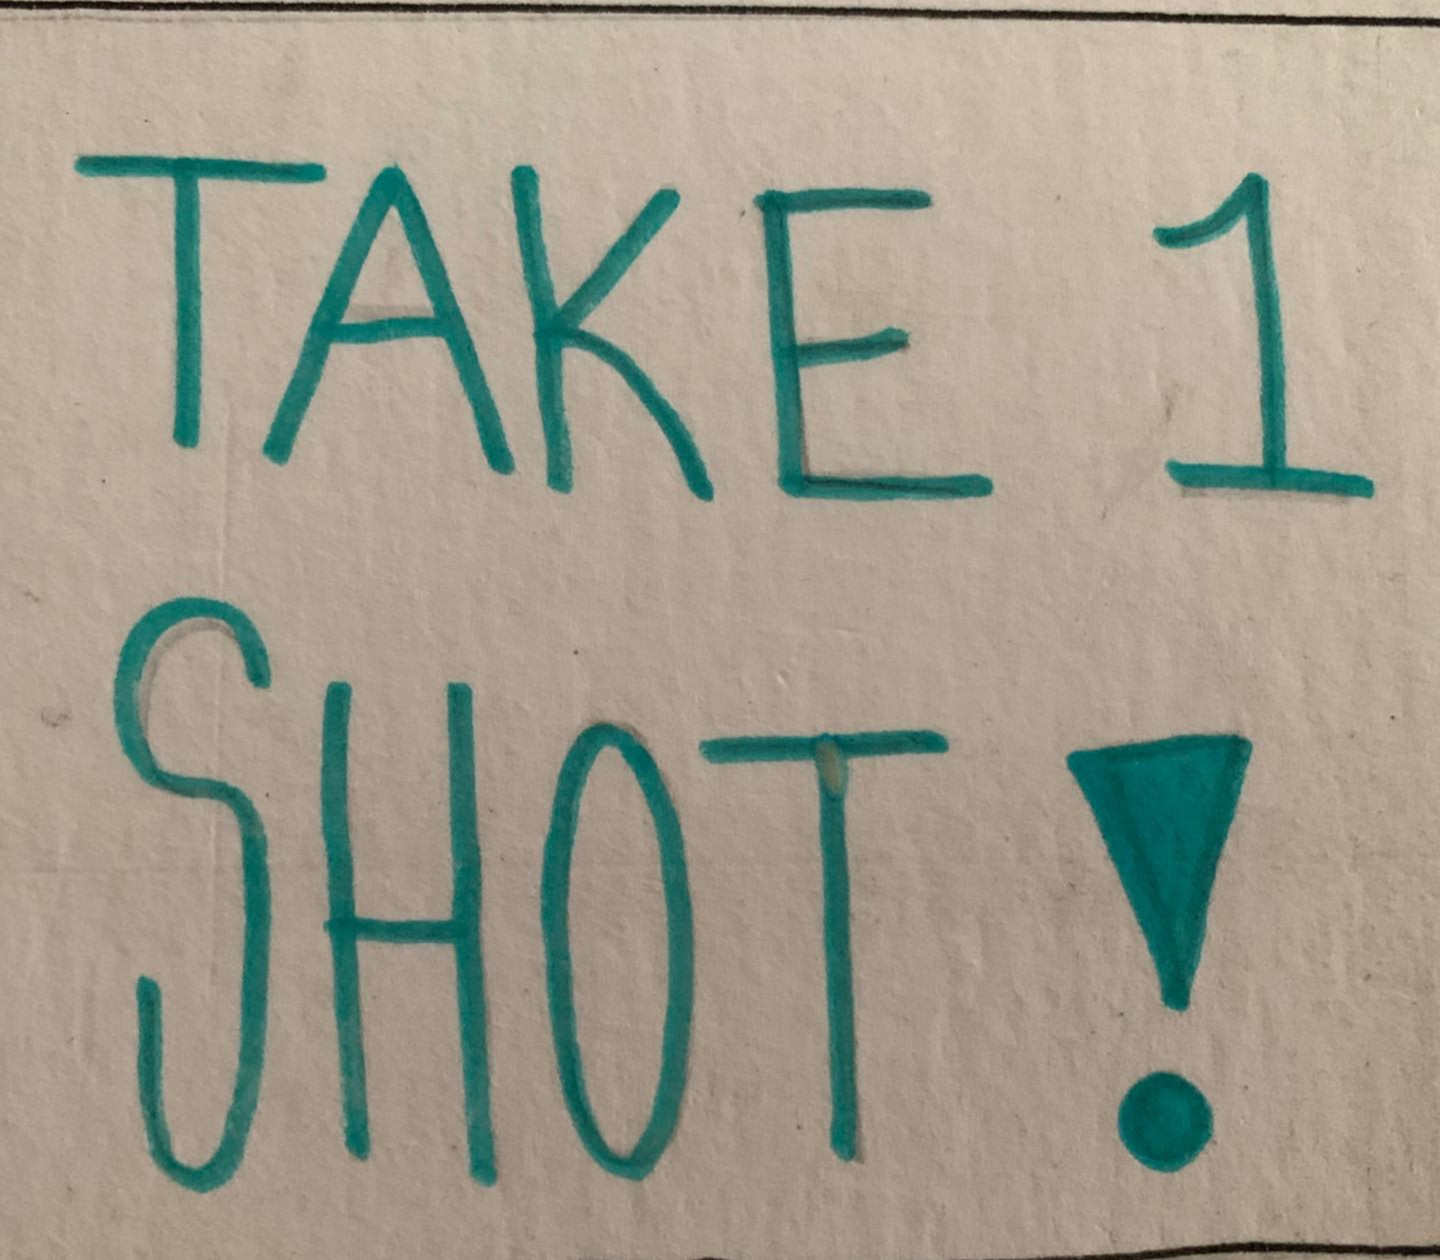 TAKE 1
SHOT!